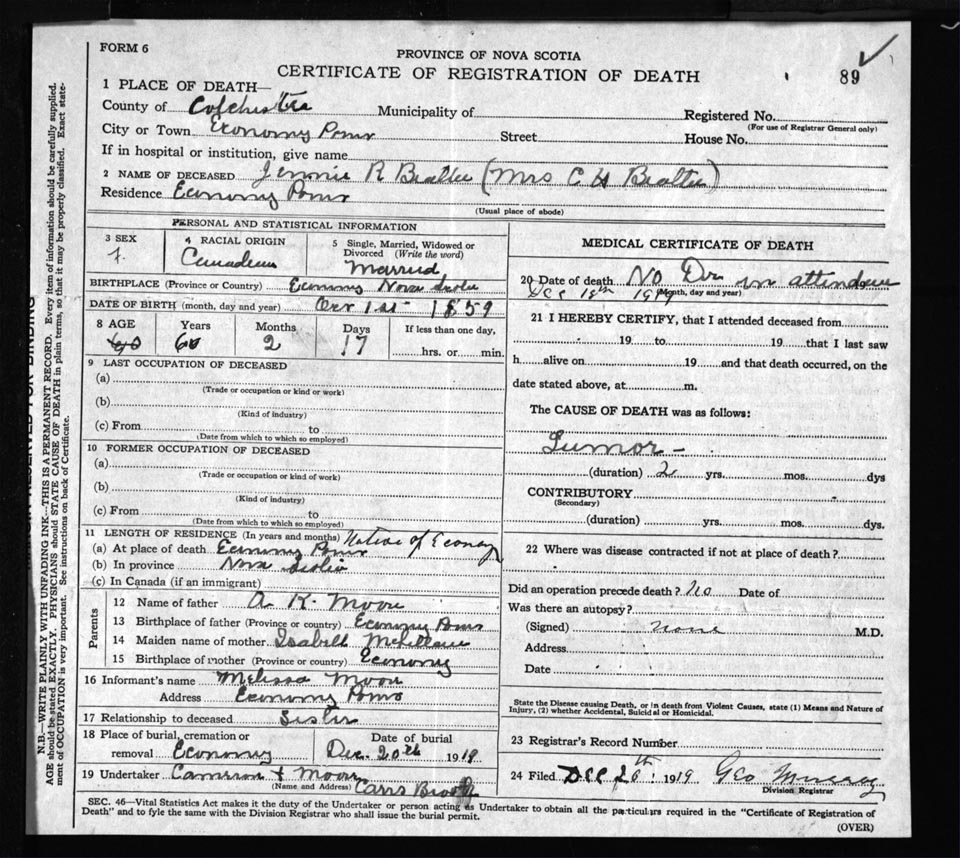 FORM 6
PROVINCE OF NOVA SCOTIA
CERTIFICATE OF REGISTRATION OF DEATH
89
1 PLACE OF DEATH—
County of Colchester Municipality of Registered No.
(For use of Registrar General only)
City or Town Economy Street House No.
If in hospital or institution, give name
2 NAME OF DECEASED Jennie R (Mrs C H
Residence Economy
(Usual place of abode)
PERSONAL AND STATISTICAL INFORMATION
3 SEX f.
4 RACIAL ORIGIN Canadian
5 Single, Married, Widowed or Divorced (Write the word) Married
BIRTHPLACE (Province or Country) Economy Nova Scotia
DATE OF BIRTH (month, day and year) 1st 1859
8 AGE Years 60 Months 2 Days 17 If less than one day, hrs. or min.
9 LAST OCCUPATION OF DECEASED
(a)
(Trade or occupation or kind or work)
(b)
(Kind of industry)
(c) From to
(Date from which to which so employed)
10 FORMER OCCUPATION OF DECEASED
(a)
(Trade or occupation or kind of work)
(b)
(Kind of industry)
(c) From to
(Date from which to which so employed)
11 LENGTH OF RESIDENCE (In years and months) Native of Economy
(a) At place of death Economy
(b) In province Nova Scotia
(c) In Canada (if an immigrant)
Parents
12 Name of father A K
13 Birthplace of father (Province or country) Economy
14 Maiden name of mother Isabell
15 Birthplace of mother (Province or country) Economy
16 Informant's name Melissa
Address Economy
17 Relationship to deceased Sister
18 Place of burial, cremation or removal Economy Date of burial Dec. 20th 1919
19 Undertaker Cameron &
(Name and Address) Carrs Brook
MEDICAL CERTIFICATE OF DEATH
20 Date of death No Dr in attendence
Dec 18th 1919 (Month, day and year)
21 I HEREBY CERTIFY, that I attended deceased from
19 to 19 that I last saw
h alive on 19 and that death occurred, on the
date stated above, at m.
The CAUSE OF DEATH was as follows:
Tumor -
(duration) 2 yrs. mos. dys
CONTRIBUTORY
(Secondary)
(duration) yrs. mos. dys.
22 Where was disease contracted if not at place of death?
Did an operation precede death? No Date of
Was there an autopsy?
(Signed) none M.D.
Address
Date
State the Disease causing Death, or in death from Violent Causes, state (1) Means and Nature of
Injury, (2) whether Accidental, Suicidal or Homicidal.
23 Registrar's Record Number
24 Filed Dec 26th 1919 Geo
Division Registrar
SEC. 46—Vital Statistics Act makes it the duty of the Undertaker or person acting as Undertaker to obtain all the particulars required in the "Certificate of Registration of
Death" and to fyle the same with the Division Registrar who shall issue the burial permit.
(OVER)
N.B.—WRITE PLAINLY WITH UNFADING INK—THIS IS A PERMANENT RECORD. Every item of information should be carefully supplied.
AGE should be stated EXACTLY. PHYSICIANS should STATE CAUSE OF DEATH in plain terms, so that it may be properly classified. Exact state-
ment of OCCUPATION is very important. See instructions on back of Certificate.